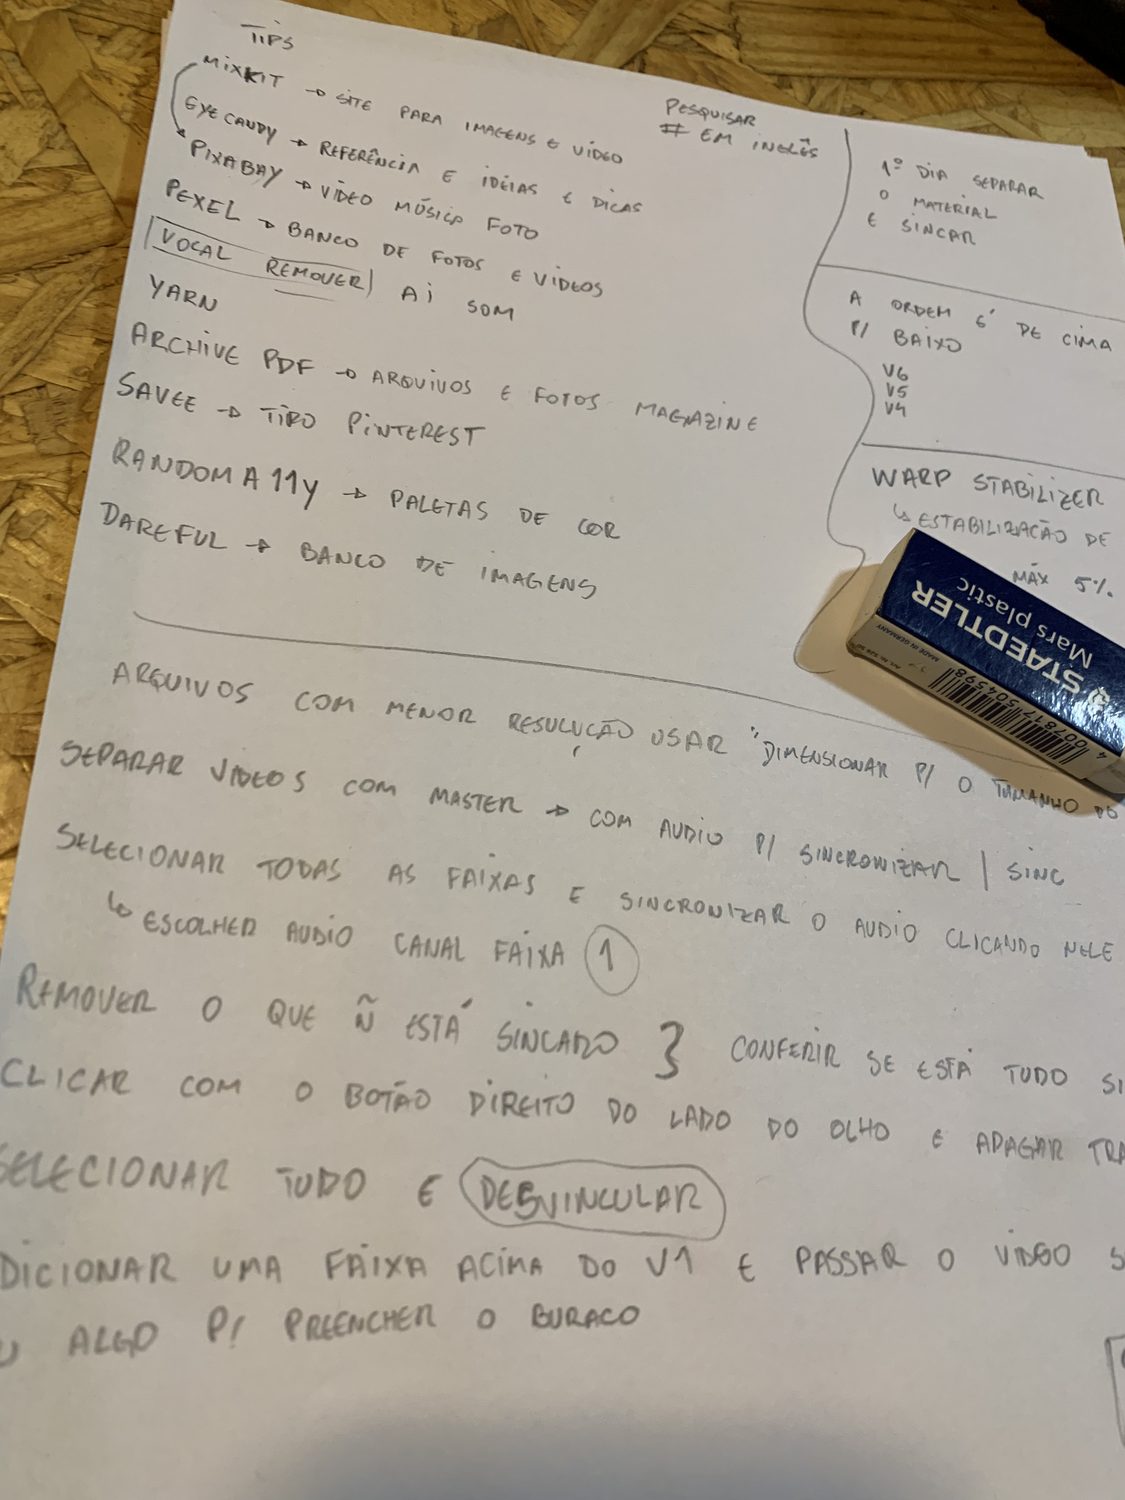 TIPS
MIXKIT → SITE PARA IMAGENS E VÍDEO
EYECANDY → REFERÊNCIA E IDÉIAS E DICAS
PIXABAY → VÍDEO MÚSICA FOTO
PEXEL → BANCO DE FOTOS E VÍDEOS
VOCAL REMOVER AI SOM
YARN
ARCHIVE PDF → ARQUIVOS E FOTOS MAGAZINE
SAVEE → TIPO PINTEREST
RANDOMA11Y → PALETAS DE COR
DAREFUL → BANCO DE IMAGENS
PESQUISAR
# EM INGLÊS
1º DIA SEPARAR
O MATERIAL
E SINCAR
A ORDEM É DE CIMA
P/ BAIXO
V6
V5
V4
WARP STABILIZER
↳ ESTABILIZAÇÃO DE
MÁX 5%
STAEDTLER
Mars plastic
MADE IN GERMANY
4 007817 504598
ARQUIVOS COM MENOR RESULUÇÃO USAR "DIMENSIONAR P/ O TAMANHO DO
SEPARAR VIDEOS COM MASTER → COM AUDIO P/ SINCRONIZAR | SINC
SELECIONAR TODAS AS FAIXAS E SINCRONIZAR O AUDIO CLICANDO NELE
↳ ESCOLHER AUDIO CANAL FAIXA 1
REMOVER O QUE Ñ ESTÁ SINCADO } CONFERIR SE ESTÁ TUDO SI
CLICAR COM O BOTÃO DIREITO DO LADO DO OLHO E APAGAR TRA
SELECIONAR TUDO E DESVINCULAR
DICIONAR UMA FAIXA ACIMA DO V1 E PASSAR O VIDEO S
U ALGO P/ PREENCHER O BURACO